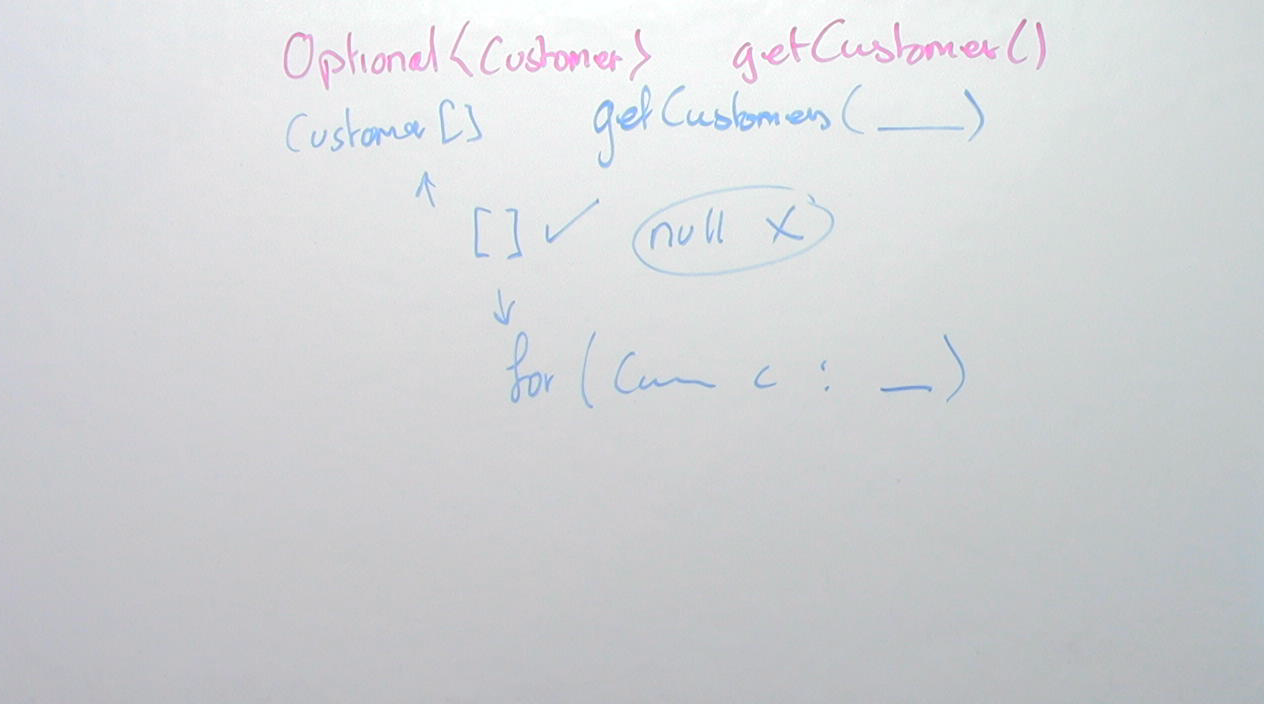 Optional<Customer> getCustomer()
Customer[] getCustomers(___)
↑
[] ✓ null X
↓
for ( c : __)